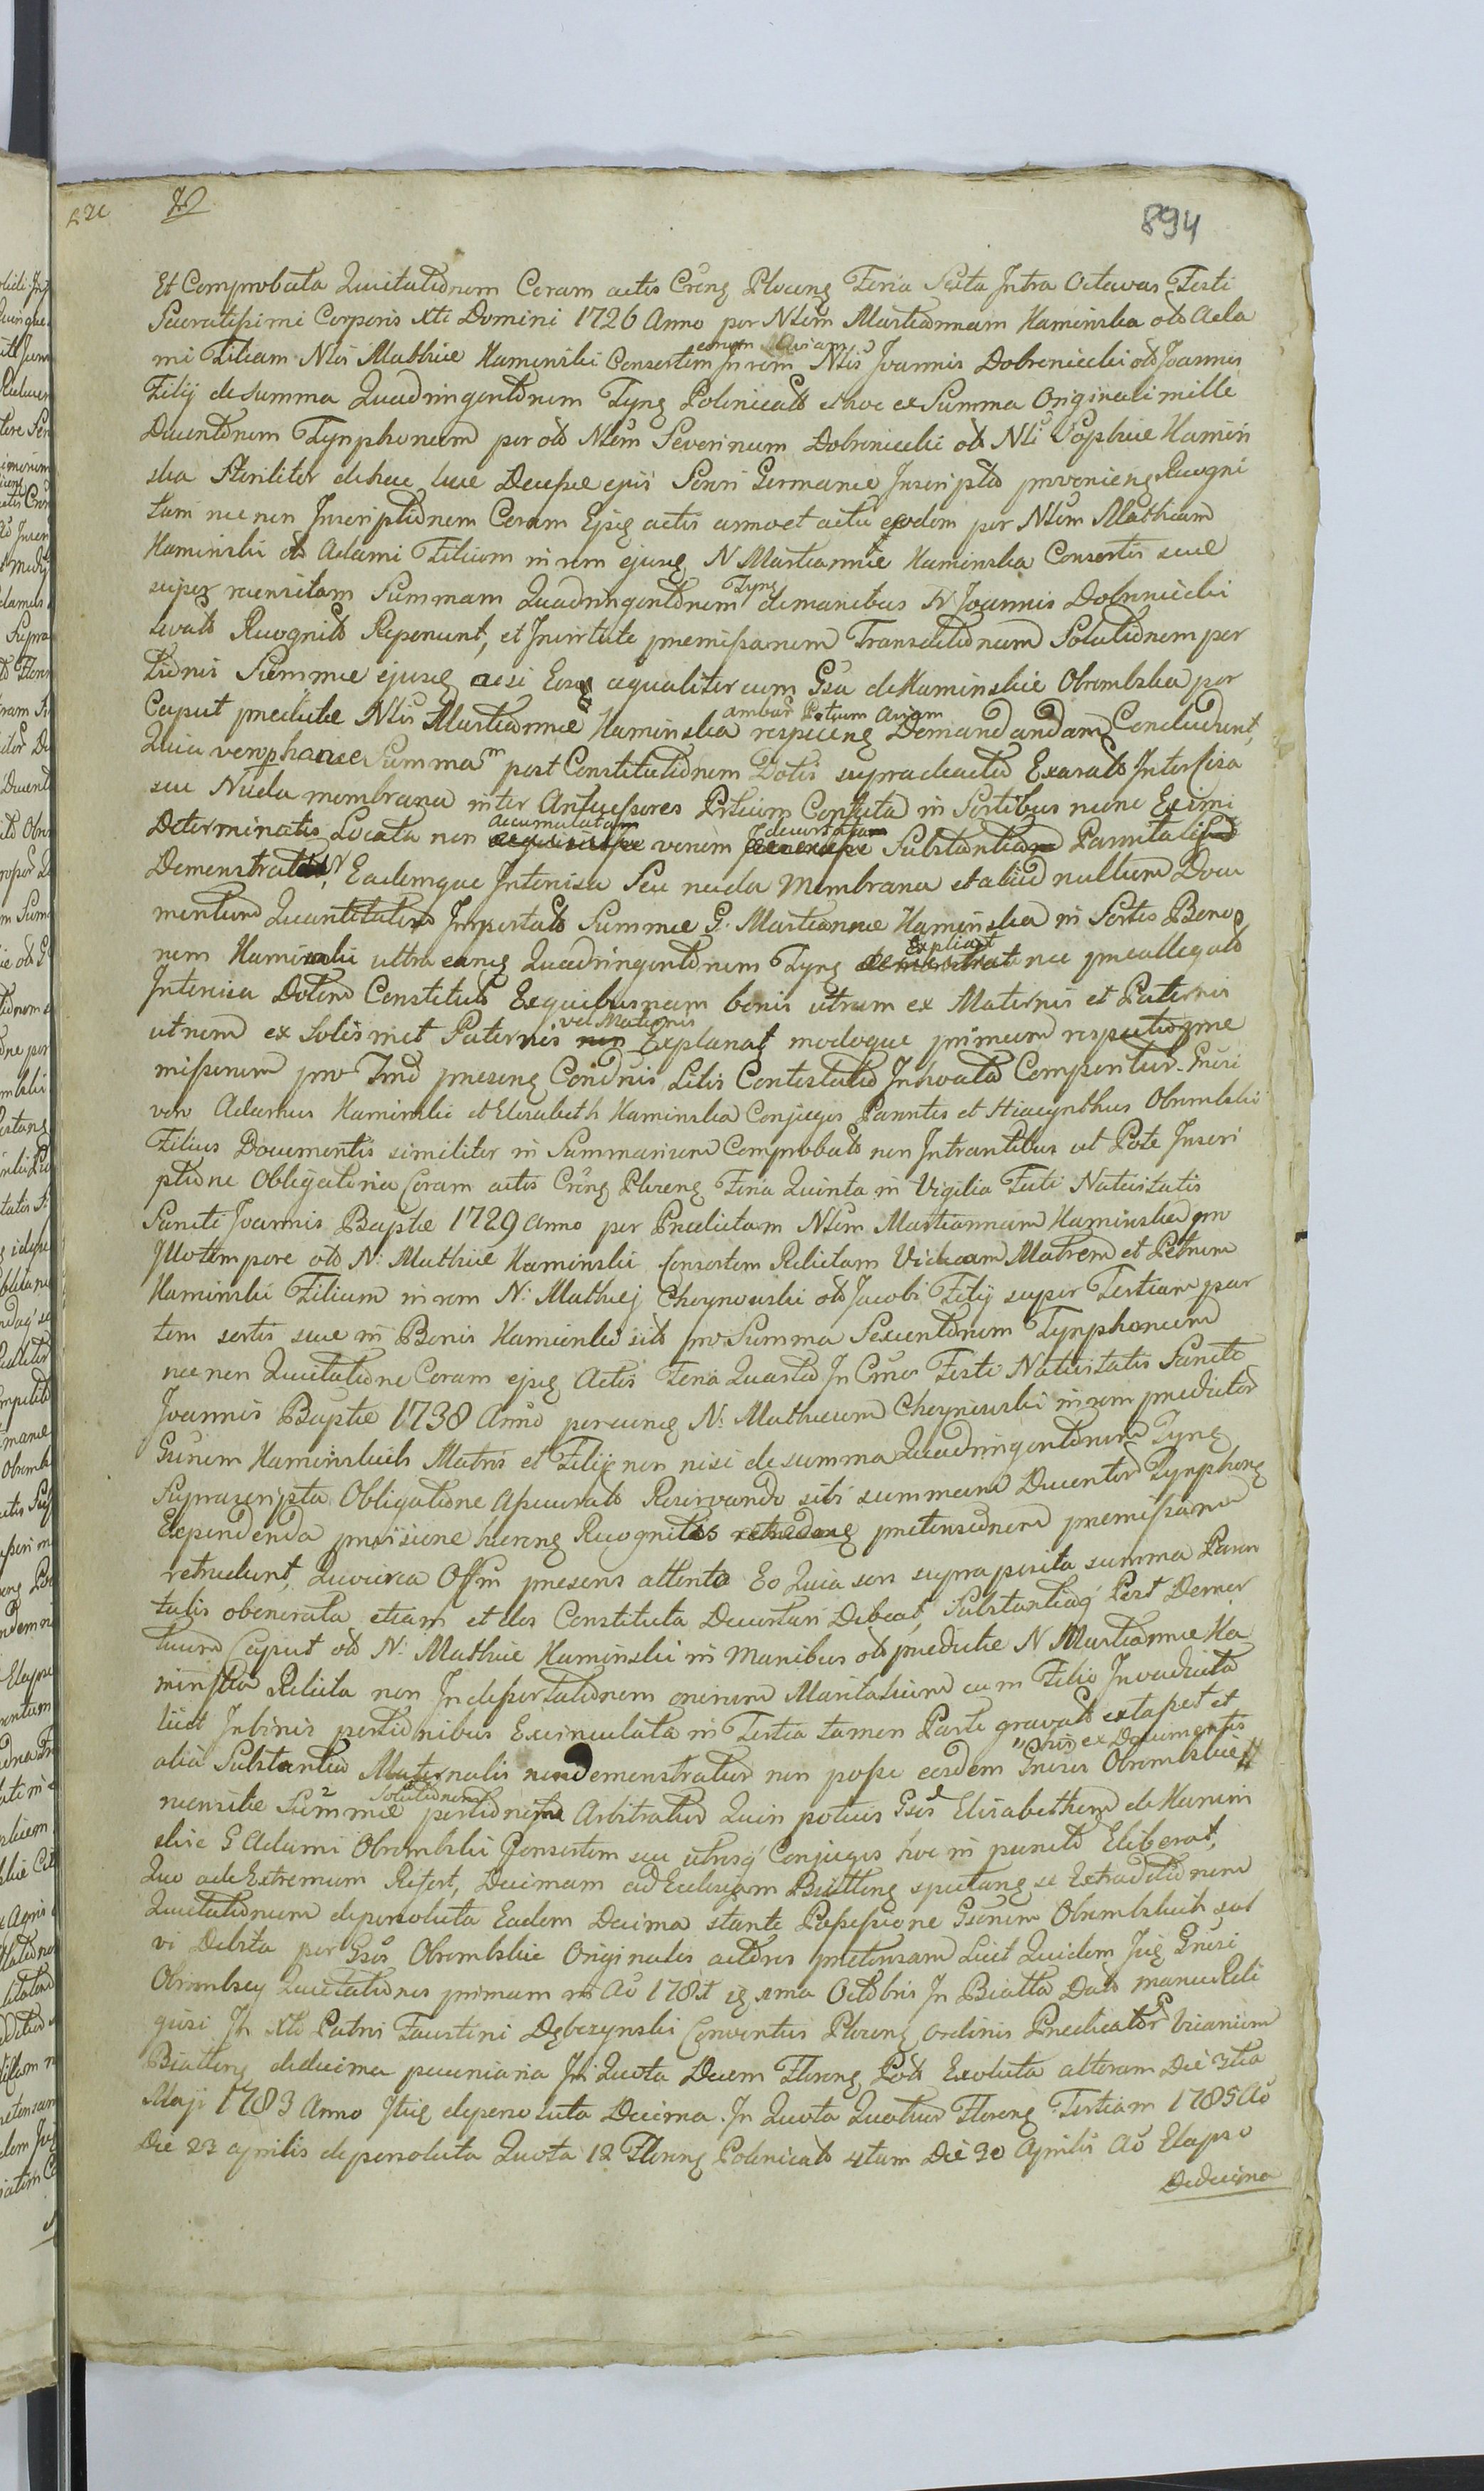 894
Et Comprobata Quietationem Coram actis Crēng Plocēng Feria Sexta Intra Octavas Festi
Sacratissimi Corporis xti Domini 1726 Anno per Nlem Mariannam Kaminska olo Ada
mi Filiam Nlis Mathiæ Kaminski Consortem eorum Aviam In rem Nlis Joannis Dobrosielski olo Joannis
Filij de summa Quadringentorum Tyng Polonicalo et hoc ex Summa Originali mille
Ducentorum Tynphonum per olo Nlem Severinum olo Nli Sophiæ Kamin
ska Steriliter de hac luce Decessæ ejus Sorori Germanæ Inscripto provenieng Recogni
tam nec non Inscriptionem Coram Ejsg actis anno et actu eodem per Nlem Mathiam
Kaminski olo Adami Filium in rem ejusg N Mariannæ Kaminska Consortis suæ
super recensitam Summam Quadringentorum Tyng de manibus N Joannis
levato Recognito Reponunt, et In virtute præmissarum Transactionum Solutionem por
tionis Summæ ejusg ac si Eosg æqualiter cum Gsa de Kaminskie Obrembska per
Caput prædictæ Nlis Mariannæ Kaminska ambar Partium Aviam respicieng Demandandam Concludunt,
Quia vero Summam post Constitutionem Dotis supra de actu Exarato Intercisa
seu Nuda membrana inter Antecessores Partium Confecta in Sortibus nunc Eximi
Determinatis Locata non accumulatam verum decurtatam Substantiam Parentali
Demonstratur, Eademque Intercisa Seu nuda Membrana et aliud nullum Docu
mentum Quantitatem Importato Summæ G. Mariannæ Kaminska in Sortes Bono
rum Kaminski ultra eang Quadringentorum Tyng Expliat nec præallegato
Intercisa Dotem Constituto Ex quibusnam bonis utrum ex Maternis et Paternis
utrum ex Solismet Paternis vel Maternis Explanat modoque primum respectu præ
missorum pro Tmo præseng Condnis Litis Contestatio Inchoata Comperitur. Gnrsi
vero Adamus Kaminski et Elisabeth Kaminska Conjuges Parentes et Hiacynthus Obrembski
Filius Documentis similiter in Summarium Comprobato non Intrantibus ut Pote Inscri
ptione Obligatoria Coram actis Crēng Plocēng Feria Quinta in Vigilia Festi Nativitatis
Sancti Joannis Baptæ 1729 Anno per Prædictam Nlem Mariannam Kaminska pro
Illo tempore olo N. Mathiæ Kaminski Consortem Relictam Viduam Matrem et Petrum
Kaminski Filium in rem N. Mathiej Choynowski olo Jacobi Filij super Tertiam par
tem sortis suæ in Bonis Kaminki sito pro Summa Sexcentorum Tynphonum
nec non Quietatione Coram ejsg Actis Feria Quarta In Cmo Festi Nativitatis Sancti
Joannis Baptæ 1738 Anno per eung N. Mathiam Choynowski in rem prædictor
Gsorum Kaminskich Matris et Filij non nisi de summa Quadringentorum Tyng
Suprascripta Obligatione Assecurato Reservando sibi summam Ducentor Tynphong
Expendenda provisione hæreng Recognitis prætensionem præmissam
retrudunt, Quocirca Offm præsens attento Eo Quia sors supra posita summa Paren
talis obonerata etiam et dos Constituta Decurtari Debeat, Substantiag Post Demor
tuum Caput olo N. Mathiæ Kaminski in Manibus olo prædictæ N Mariannæ Ka
minska Relicta non In deportationem onerum Maritalium cum Filio Invadiata
licet In binis portionibus Exvinculata in Tertia tamen Parte gravato extasset et
alia Substantia Maternalis non demonstratur non posse eosdem Gnrsos Obrembskie onus ex Documentis
recensitæ Summæ Solutionem portionis Arbitratur Quin potius Gsos Elisabetham de Kamin
skie G Adami Obrembski Consortem seu utrosg Conjuges hoc in puncto Eliberat,
Quo ad Extremum Refert, Decimam ad Ecclesiam Biatteng spectang se Extraditionem
Quietationum depersoluta Eadem Decima stante Possessione Gsorum Obrembskich sal
vi Debita per Gsos Obrembskie Originales actores prætensam Licet Quidem Jug Gnrsi
Obrembscy Quietationes primam in Ao 178 1ma Octobris In Biatta Dato manu Reli
giosi In xto Patris Faustini Dębczynski Conventus Ploceng ordinis Prædicator Vicarium
Biatteng de decima pecuniaria In Quota Decem Floreng Pols Exoluta alteram Die 3tia
Maji 1783 Anno Itig depersoluta Decima In Quota Quatuor Floreng Tertiam 1785 Ao
Die 23 aprilis depersoluta Quota 12 Floreng Polonicalo 4tam Die 30 Aprilis Ao Elapso
De decima